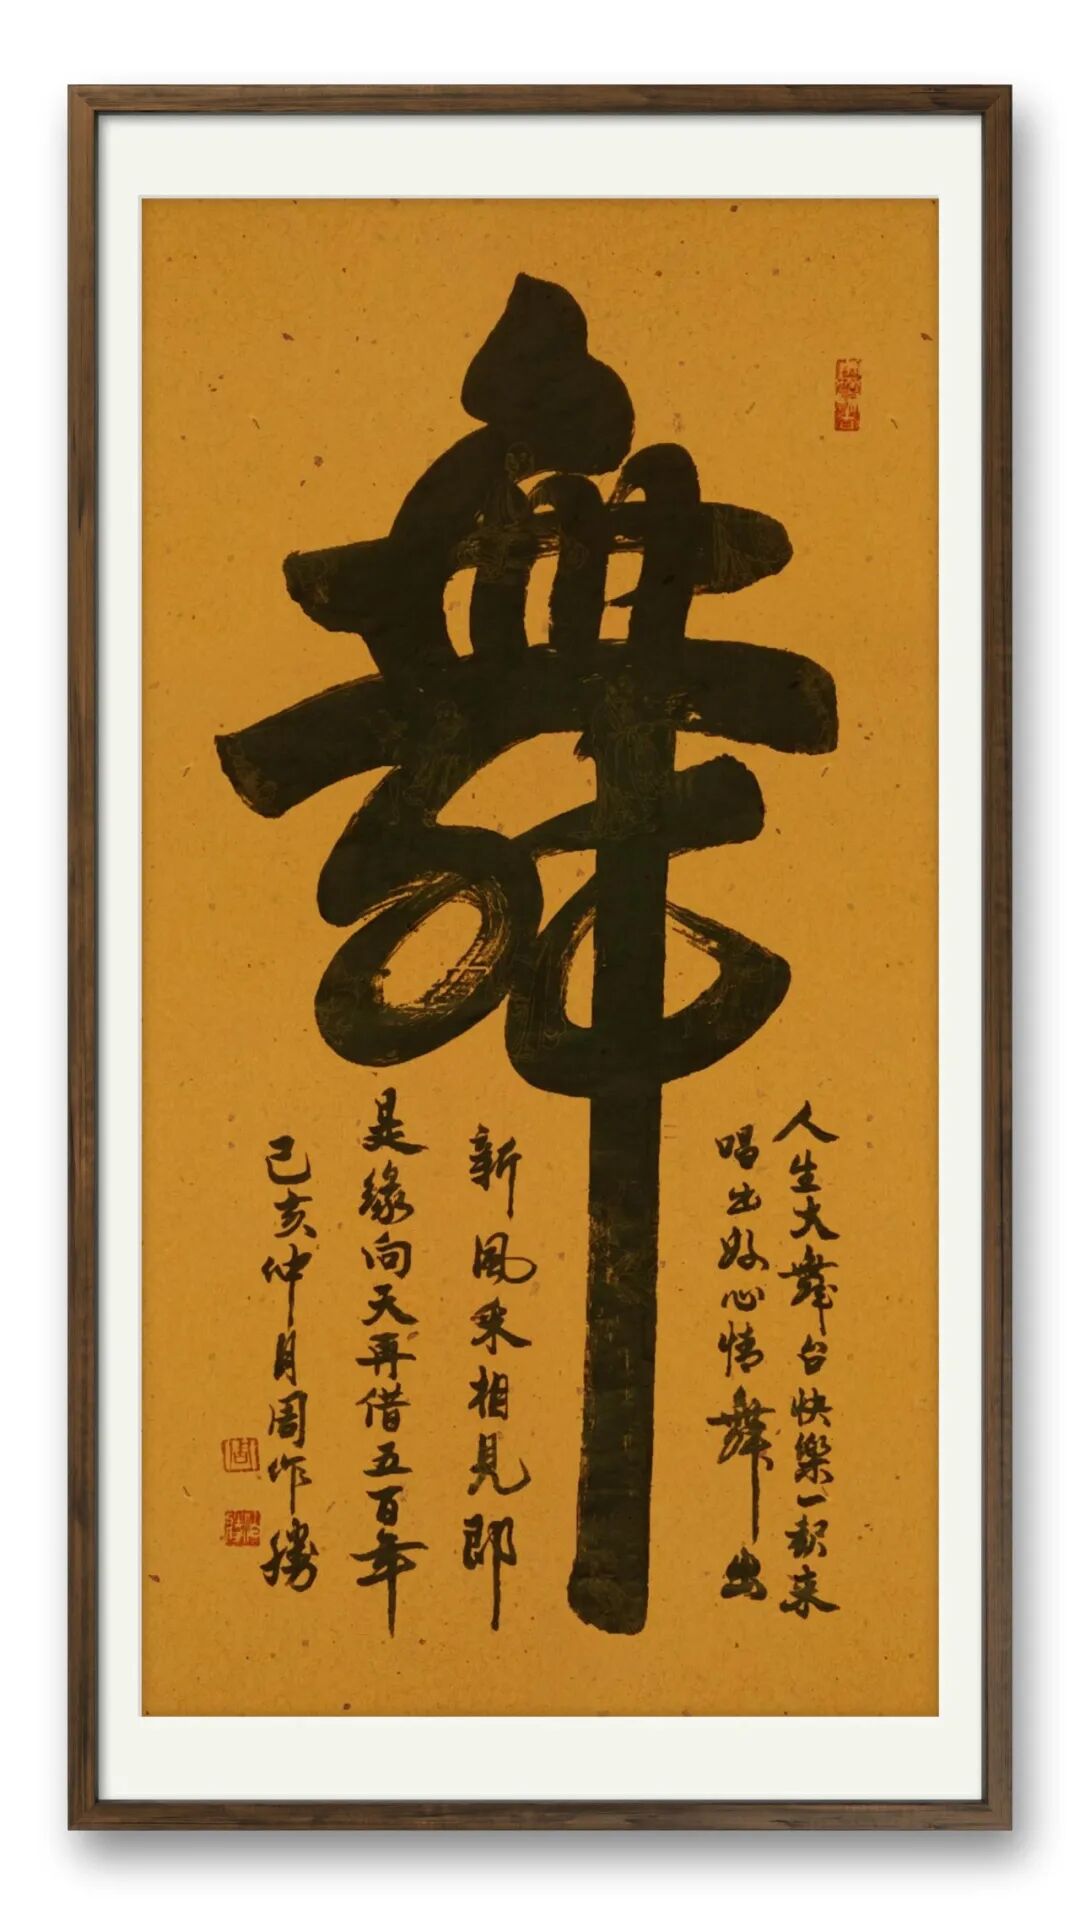 舞
人生大舞台快樂一起来
唱出好心情舞出
新風采相見即
是緣向天再借五百年
己亥仲月周作勝